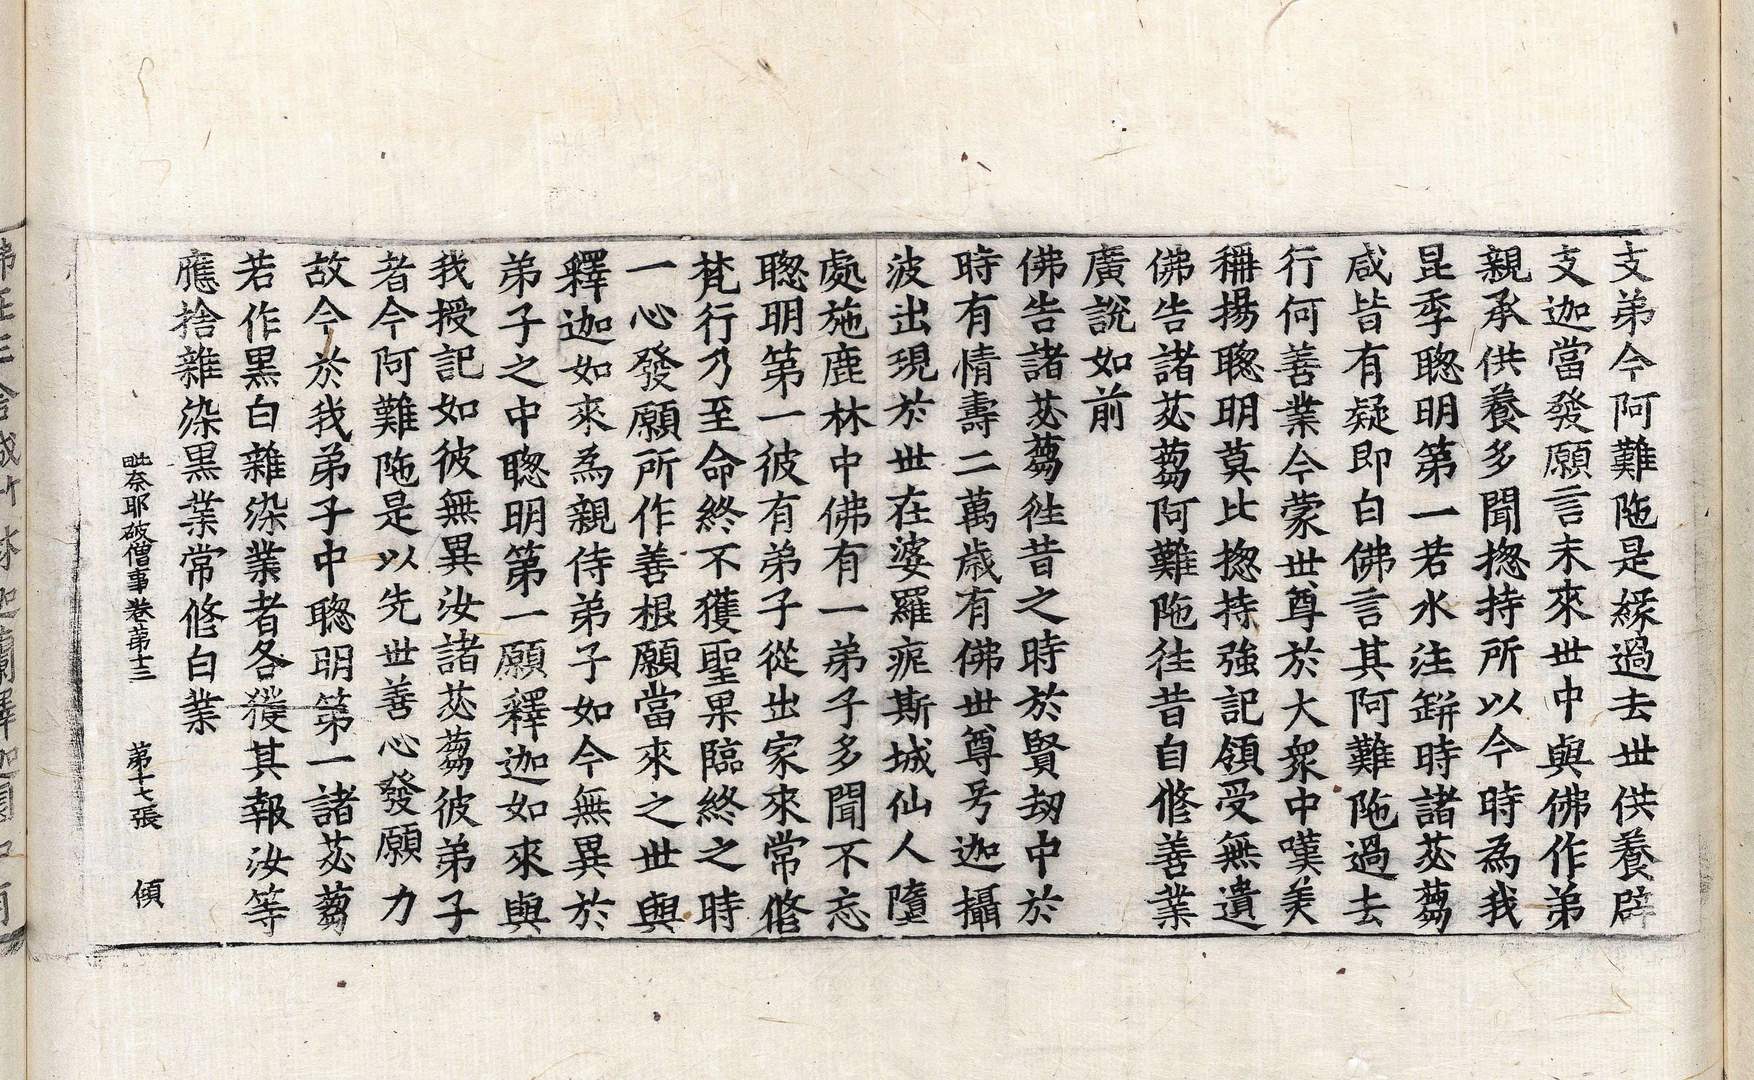 支弟今阿難陁是緣過去世供養辟
支迦當發願言未來世中與佛作弟
親承供養多聞捴持所以今時為我
昆季聦明第一若水注缾時諸苾蒭
咸皆有疑即白佛言其阿難陁過去
行何善業今蒙世尊於大衆中嘆美
稱揚聦明莫比捴持強記領受無遺
佛告諸苾蒭阿難陁往昔自修善業
廣說如前
佛告諸苾蒭徃昔之時於賢劫中於
時有情壽二萬歲有佛世尊号迦攝
波出現於世在婆羅痆斯城仙人墮
處施鹿林中佛有一弟子多聞不忘
聦明第一彼有弟子從出家來常修
梵行乃至命終不獲聖果臨終之時
一心發願所作善根願當來之世與
釋迦如來為親侍弟子如今無異於
弟子之中聦明第一願釋迦如來與
我授記如彼無異汝諸苾蒭彼弟子
者今阿難陁是以先世善心發願力
故今於我弟子中聦明第一諸苾蒭
若作黒白雜染業者各獲其報汝等
應捨雜染黒業常修白業
毗奈耶破僧事卷第十三 第十七張 傾